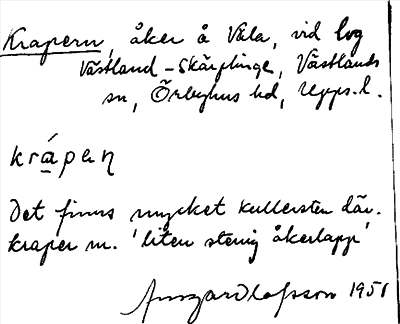 Krapern, åker å Våla, vid lvg
Västland-Skärplinge, Västlands
sn, Örbyhus hd, Upps. l.
krá̱paɳ
Det finns mycket kullersten där.
kraper m. 'liten stenig åkerlapp'
Olofsson 1951